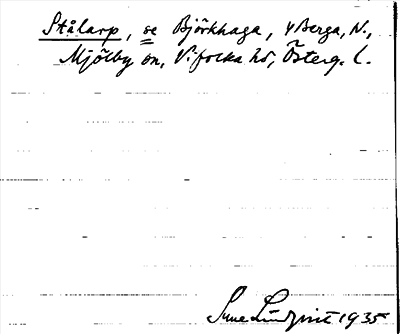 Stålarp, se Björkhaga, 4 Berga, N.,
Mjölby sn, Vifolka hd, Österg. L.
Sune Lindqvist 1935